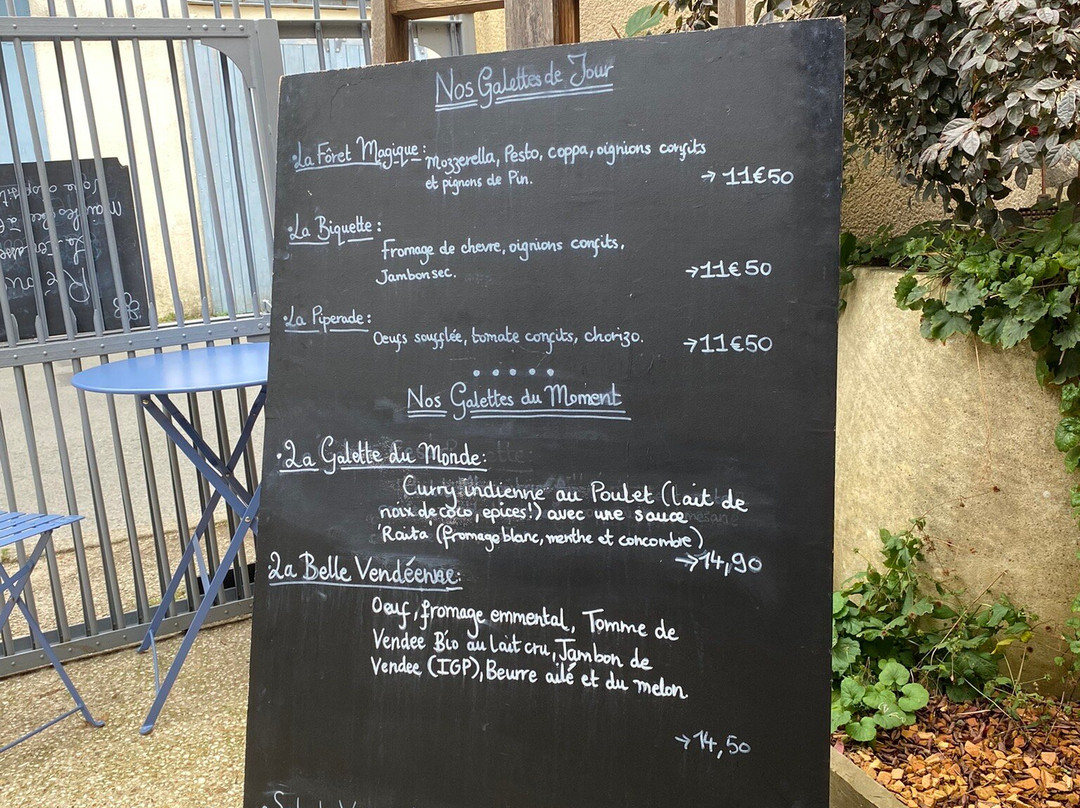 Nos Galettes de Jour
• La Fôret Magique : Mozzerella, Pesto, coppa, oignions confits
et pignons de Pin.
→ 11€50
• La Biquette :
Fromage de chevre, oignions confits,
Jambon sec.
→ 11€50
• La Piperade :
Oeufs soufflée, tomate confits, chorizo.
→ 11€50
• • • • •
Nos Galettes du Moment
• La Galette du Monde :
Curry indienne au Poulet (lait de
noix de coco, epices!) avec une sauce
'Raita' (fromage blanc, menthe et concombre)
→ 14,90
• La Belle Vendéenne :
Oeuf, fromage emmental, Tomme de
Vendee Bio au lait cru, Jambon de
Vendee (IGP), Beurre ailé et du melon
→ 14,50